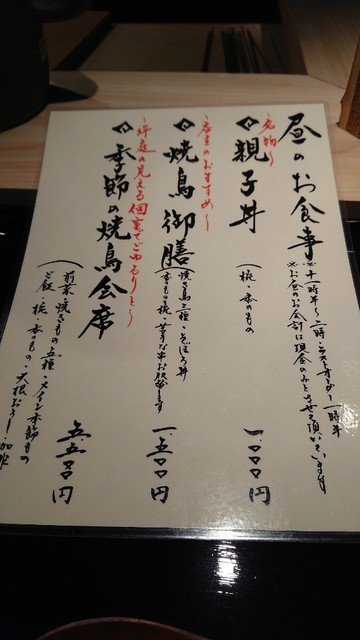 昼のお食事
※十一時半～二時・ラストオーダー一時半
※お昼のお会計は現金のみとさせて頂いています
～名物～
親子丼
(椀・香のもの
一、〇〇〇円
～店主のおすすめ～
焼鳥御膳
(焼き鳥三種・そぼろ丼
香のもの・椀
一、五〇〇円
～坪庭の見える個室でごゆるりと～
季節の焼鳥会席
(前菜・焼きもの五種・メイン季節もの
ご飯・椀・香のもの・大根おろし・珈琲
五、五〇〇円